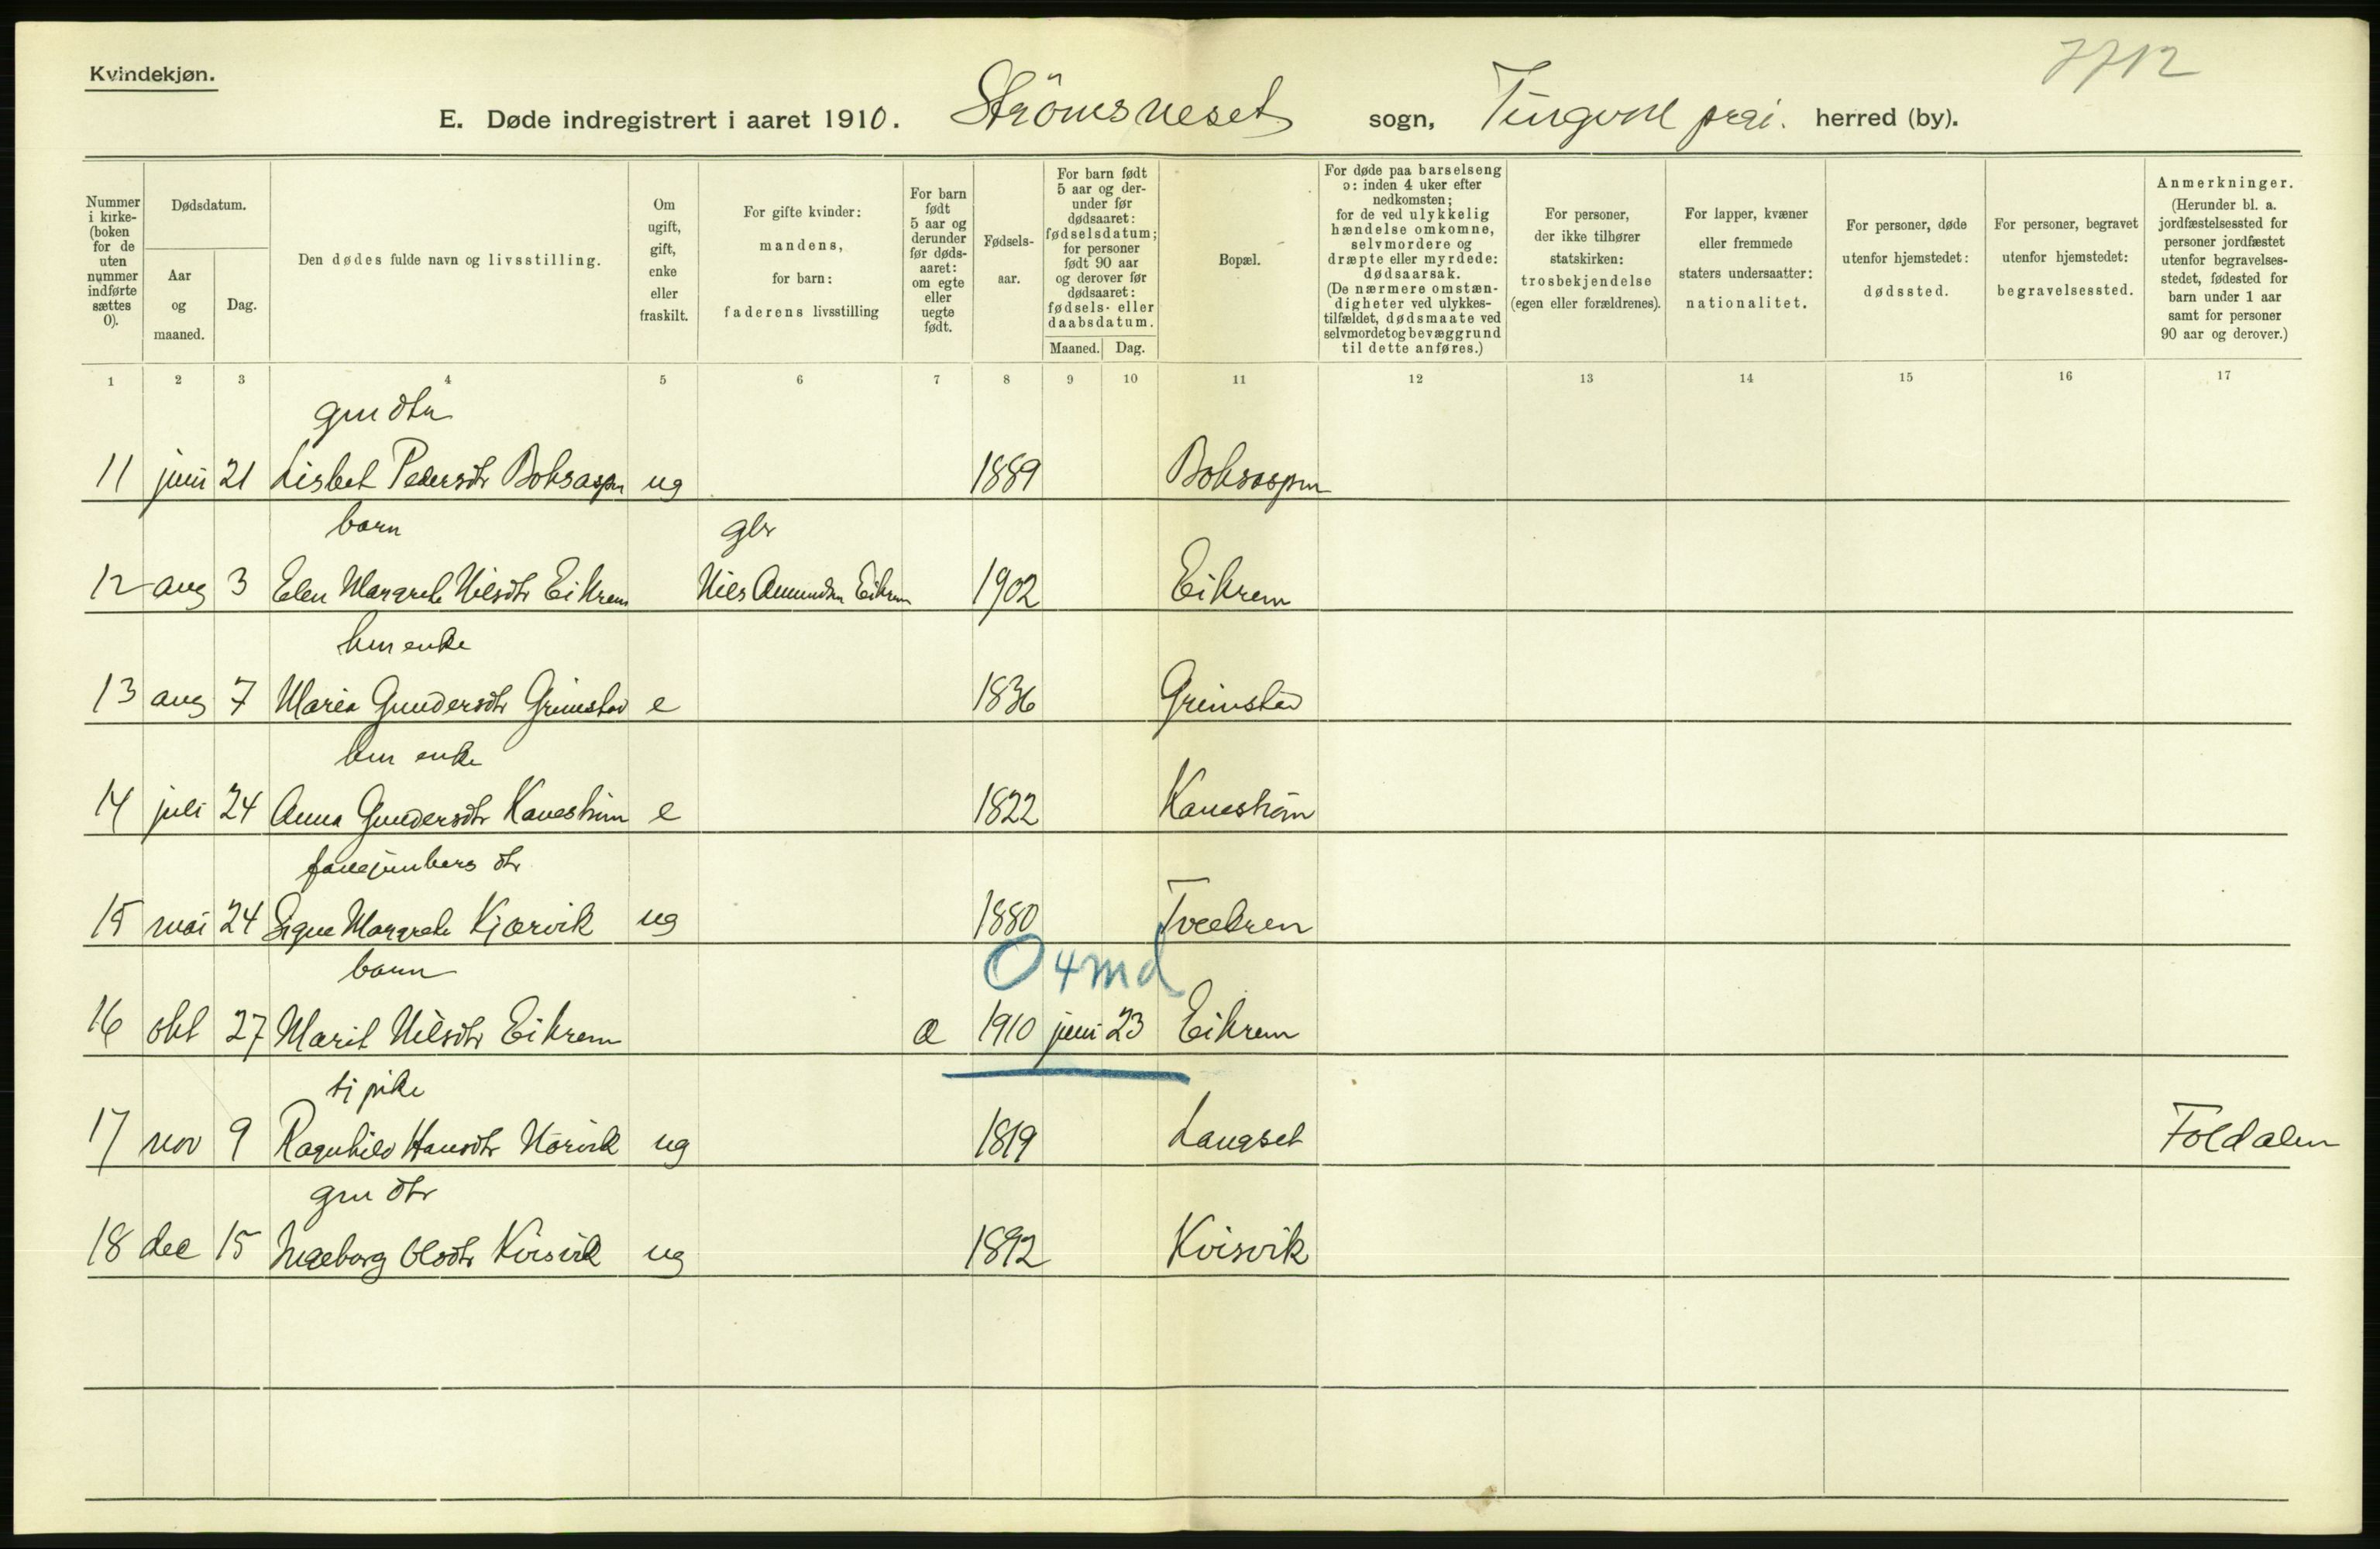 7712
Kvindekjøn.
E. Døde indregistrert i aaret 1910. Strömsneset sogn, Tingvoll herred (by).
Nummer i kirke- (boken for de uten nummer indførte sættes 0).
Dødsdatum.
Aar og maaned.
Dag.
Den dødes fulde navn og livsstilling.
Om ugift, gift, enke eller fraskilt.
For gifte kvinder: mandens, for barn: faderens livsstilling
For barn født 5 aar og derunder før døds- aaret: om egte eller uegte født.
Fødsels- aar.
For barn født 5 aar og der- under før dødsaaret: fødselsdatum; for personer født 90 aar og derover før dødsaaret: fødsels- eller daabsdatum.
Maaned. Dag.
Bopæl.
For døde paa barselseng ɔ: inden 4 uker efter nedkomsten; for de ved ulykkelig hændelse omkomne, selvmordere og dræpte eller myrdede: dødsaarsak. (De nærmere omstæn- digheter ved ulykkes- tilfældet, dødsmaate ved selvmordet og bevæggrund til dette anføres.)
For personer, der ikke tilhører statskirken: trosbekjendelse (egen eller forældrenes).
For lapper, kvæner eller fremmede staters undersaatter: nationalitet.
For personer, døde utenfor hjemstedet: dødssted.
For personer, begravet utenfor hjemstedet: begravelsessted.
Anmerkninger. (Herunder bl. a. jordfæstelsessted for personer jordfæstet utenfor begravelses- stedet, fødested for barn under 1 aar samt for personer 90 aar og derover.)
1 2 3 4 5 6 7 8 9 10 11 12 13 14 15 16 17
gm dtr
11 juni 21 Lisbet Pedersdtr Boksaspn ug 1889 Boksaspm
barn gbr
12 aug 3 Elen Margrete Nilsdtr Eikrem Nils Amundsn Eikrem 1902 Eikrem
km enke
13 aug 7 Maria Gundersdtr Grimstad e 1836 Grimstad
km enke
14 juli 24 Anna Gundersdtr Kaneström e 1822 Kaneström
fanejunkers dtr
15 mai 24 Signe Margrete Kjærvik ug 1880 Tveekren
barn 0 4 md
16 okt 27 Marit Nilsdtr Eikrem a 1910 juni 23 Eikrem
tj pike
17 nov 9 Ragnhild Hansdtr Nörvik ug 1819 Langset Foldalen
gm dtr
18 dec 15 Ingeborg Olsdtr Kvisvik ug 1892 Kvisvik